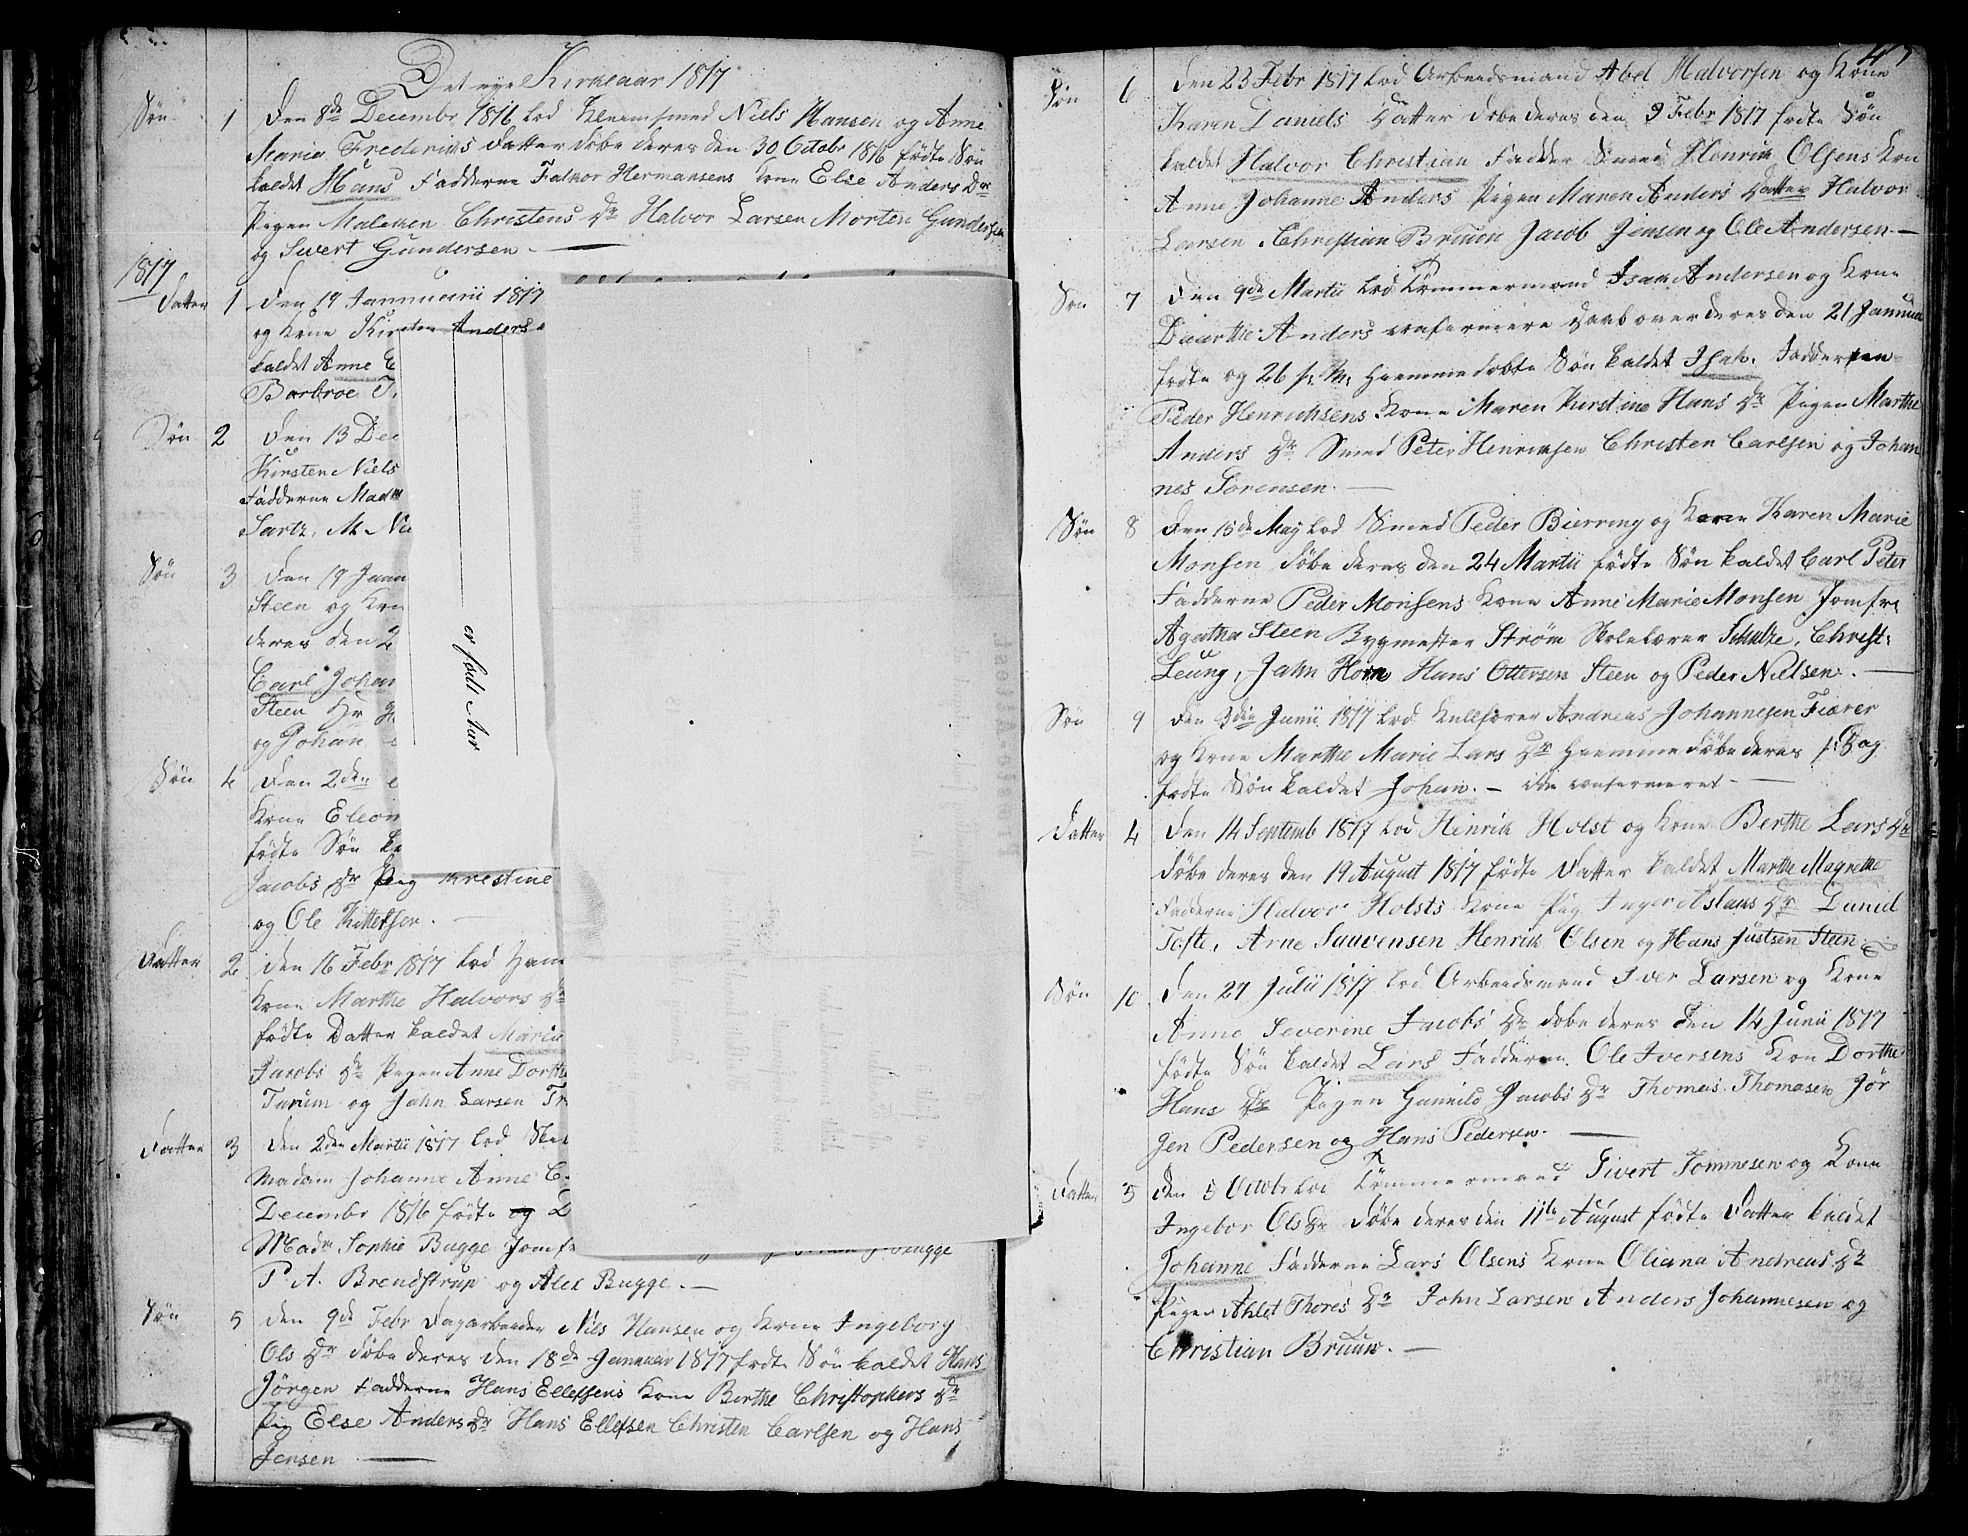 Det nye Kirkeaar 1817
Søn 1 Den 8de Decembr 1816 lod Kleensmed Niels Hansen og Anne
Maria Frederics Datter døbe deres den 30 Octobr 1816 fødte Søn
kaldet Hans Fadderne Falkor Hermansens Kone Else Anders Dr
Pigen Malehen Christens Dr Halvor Larsen Morten Gundersen
og Sivert Gundersen
1817
Datter 1 Den 19 Januarii 1817
og Kone Kirsten Anders
kaldet Anne
Barbroe
Søn 2 Den 13 Dec
Kirstene Niels
Fadderne Mad
Sartz, M. Nie
Søn 3 Den 19 Janu
Steen og Kon
deres den 2
Carl Johan
Steen Hr
og Johan
Søn 4 Den 2den
Kone Eleon
fødte Søn k
Jacobs Dr Pig Krestine
og Ole Kittelsen.
Datter 2 Den 16 Febr 1817 lod Ham
Kone Marthe Halvors Dr
fødte Datter kaldet Marie
Jacobs Dr Pigen Anne Dorthe
Turum og Jahn Larsen Tr
Datter 3 Den 2den Martii 1817 lod
Madam Johanne Anne C
Decembr 1816 fødte og D
Madm Sophie Bugge Jomf Bugge
P. A. Brendstrup og Alex Bugge.
Søn 5 Den 9de Febr Dagarbeider Nils Hansen og Kone Ingeborg
Ols Dr døbe deres den 18de Januar 1817 fødte Søn kaldet Hans
Jörgen Fadderne Hans Ellefsens Kone Berthe Christophers Dr
Pig Else Anders Dr Hans Ellefsen Christen Carlsen og Hans
Jensen
er født Aar
Søn 6 Den 23 Febr 1817 lod Arbeidsmand Abel Halvorsen og Kone
Karen Daniels Datter døbe deres den 9 Febr 1817 fødte Søn
kaldet Halvor Christian Fadder Smed Henrik Olsens Kon
Anne Johanne Anders Pigen Maren Anders Datter Halvor
Larsen Christian Bruun Jacob Jensen og Ole Andersen
Søn 7 Den 9de Martii lod Tømmermand Isak Andersen og Kone
Daarthe Anders confermere Daab over deres den 21 Janua
fødte og 26 s: M: hiemmedøbte Søn kaldet Isak. Fadderne
Peder Henrichsens Kone Maren Kirstine Hans Dr Pigen Marthe
Anders Dr Smed Peter Henriksen Christen Carlsen og Johan
nes Sørensen.
Søn 8 Den 15de May lod Smed Peder Bierring og Kone Karen Marie
Monsen døbe deres den 24 Martii fødte Søn kaldet Carl Peter
Fadderne Peder Monsens Kone Anne Marie Monsen Jomfr:
Agatha Steen Bygmester Strøm Skolelærer Schulze, Christ:
Leung, Jahn Horn Hans Ottersen Steen og Peder Nielsen.
Søn 9 Den 3die Junii 1817 lod Kullfører Andreas Johannesen Fiærer
og Kone Marthe Marie Lars Dr hiemmedøbe deres s: Dag
fødte Søn kaldet Johan. ikke confermeret
Datter 4 Den 14 Septemb 1817 lod Hinrik Holst og Kone Berthe Lars Dr
døbe deres den 19 August 1817 fødte Datter kaldet Marthe Magrethe
Fadderne Halvor Holsts Kone Pig Inger Aslaks Dr Daniel
Tofte, Arne Sauvensen Henrik Olsen og Hans Justsen Steen
Søn 10 Den 27 Julii 1817 lod Arbeidsmand Iver Larsen og Kone
Anne Severine Jacobs Dr døbe deres den 14 Junii 1817
fødte Søn kaldet Lars Fadderne Ole Iversens Kon Dorthe
Hans Dr Pigen Gunnild Jacobs Dr Thomas Thomasen Jör
gen Pedersen og Hans Pedersen.
Datter 5 Den 5 Octobr lod Tømmermand Sivert Tommesen og Kone
Ingebor Ols Dr døbe deres den 11te August fødte Datter kaldet
Johanne Fadderne Lars Olsens Kone Oliana Andreas Dr
Pigen Ahlet Thores Dr John Larsen Anders Johannesen og
Christian Bruun.